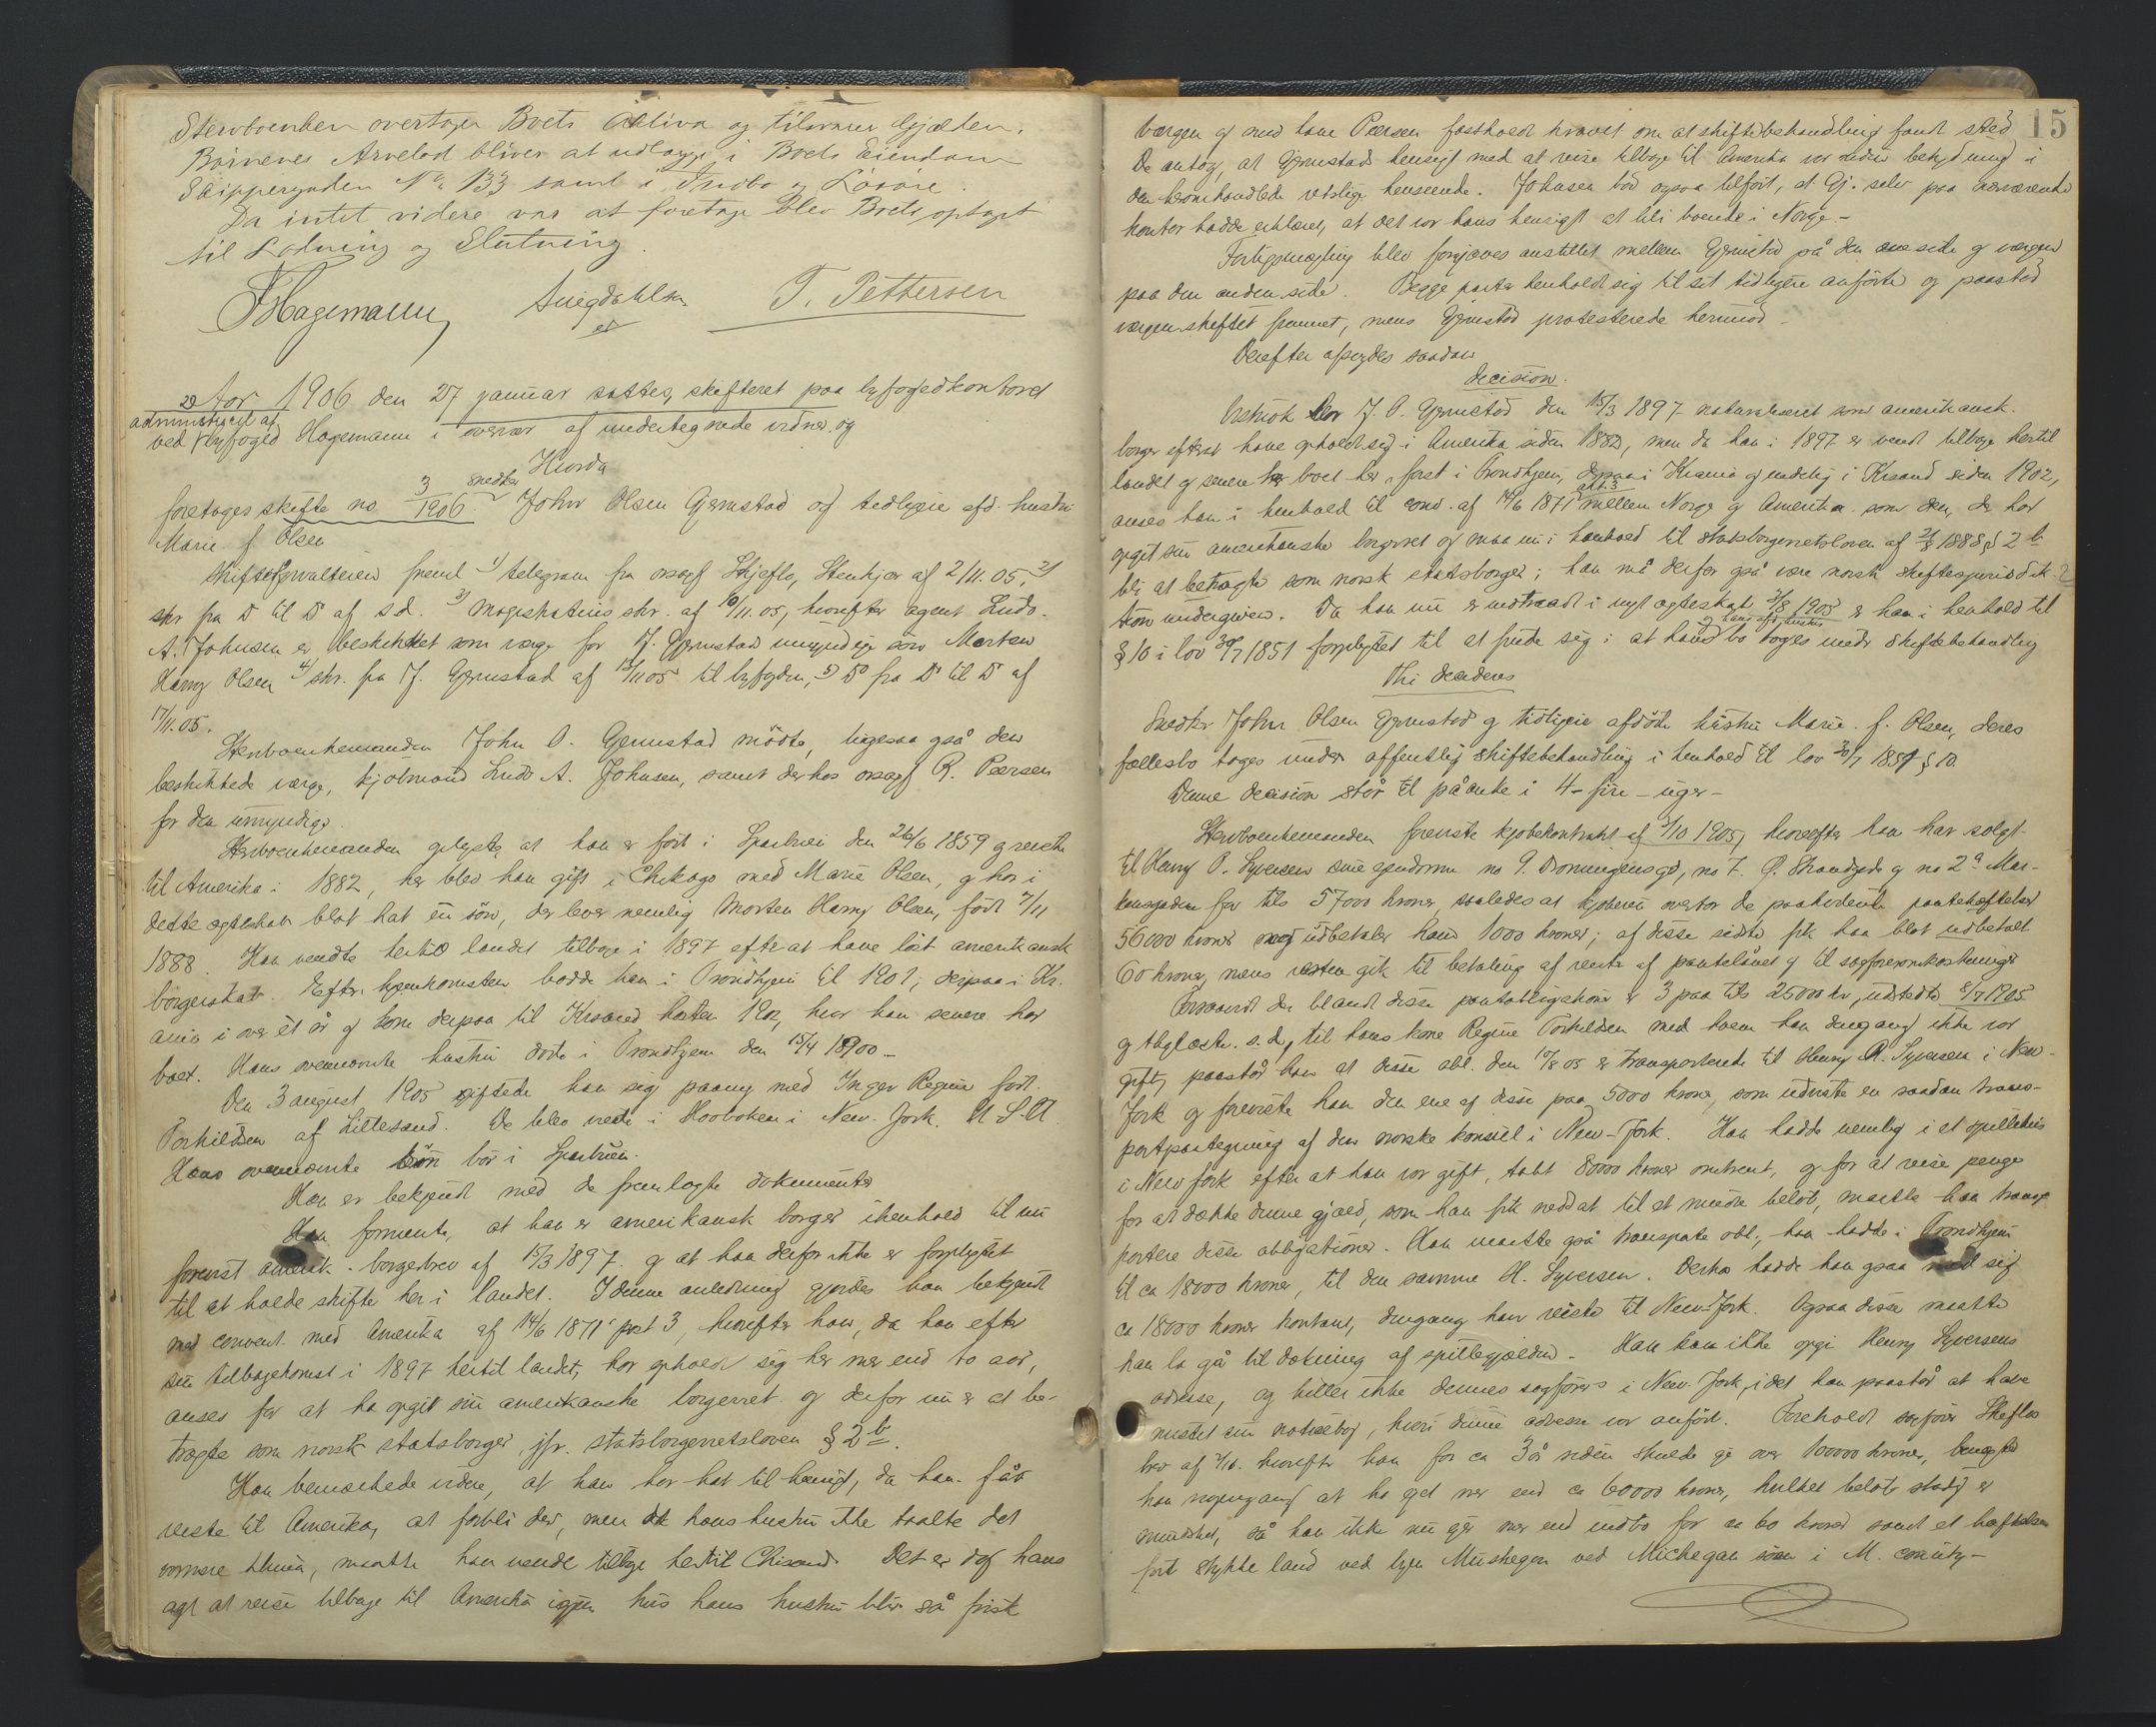 Stervboenken overtager Boets Aktiva og tilsvarer Gjælden.
Børnenes Arvelod bliver at udlægge i Boets Eiendom
Skippergaden No 133 samt i Indbo og Løsøre.
Da intet videre var at foretage blev Boets optaget
til Lodning og Slutning.
Hagemann T. Pettersen
Aar 1906 den 27 januar sattes skifteret paa byfogedkontoret
administreret af
ved byfoged Hagemann i overvær af undertegnede vidner og
Hvorda
snedker
foretages skifte no 3/1906 John Olsen Gjermstad og tidligere afd. hustru
Marie f. Olsen
Skifteforvalteren freml 1) telegram fra orsagf Skjeflo, Stenkjær af 2/11.05, 2)
skr fra D til D af s.d. 3) Magistratens skr. af 10/11.05, hvorefter agent Ludv.
A. Johnsen er beskikket som værge for J. Gjermstad umyndige søn Morten
Harry Olsen 4) skr. fra J. Gjermstad af 15/11 05 til byfogden, 5) Do fra D til D af
17/11.05.
Stervboenkemanden John O. Gjermstad mødte, ligesaa også den
beskikkede værge, kjøbmand Ludv A. Johnsen, samt derhos orsagf R. Peersen
for den umyndige.
Stervboenkemanden oplyste, at han er født i Sparbuen den 26/6 1859 og reiste
til Amerika i 1882, her blev han gift i Chikago med Marie Olsen, og har i
dette ægteskab blot hat en søn, der lever nemlig Morten Harry Olsen, født 7/11
1888. Han vendte hertil landet tilbage i 1897 efter at have løst amerikansk
borgerskab. Efter hjemkomsten bodde han i Trondhjem til 1901; derpaa i Kr.
ania i over et år og kom derpaa til Krsand høsten 1902, hvor han senere har
boet. Hans ovennævnte hustru døde i Trondhjem den 15/4 1900 -
Den 3 august 1905 giftede han sig paany med Inger Regine født
Torkildsen af Lillesand. De blev viede i Hooboken i New-York. U.S.A.
Hans ovennævnte søn bor i Sparbuen.
Han er bekjendt med de fremlagte dokumenter
Han formente, at han er amerikansk borger ihenhold til nu
forevist amerik. borgerbrev af 15/3 1897 og at han derfor ikke er forpligtet
til at holde skifte her i landet. I denne anledning gjordes han bekjendt
med convent. med Amerika af 14/6 1871 pct 3, hvorefter han, da han efter
sin tilbagekomst i 1897 hertil landet, har opholdt sig her mer end to aar,
anses for at ha opgit sin amerikanske borgerret og derfor nu er at be-
tragte som norsk statsborger, jfr. statsborgerretsloven § 2 b.
Han bemærkede videre, at han har hat til hensigt, da han
reiste til Amerika, at forbli der, men da hans hustru ikke taalte det
varmere klima, maatte han vende tilbage hertil Chrsand. Det er dog hans
agt at reise tilbage til Amerika igjen hvis hans hustru blir så frisk
15
Værgen og med ham Peersen fastholdt kravet om at skiftebehandling fandt sted
De antog, at Gjermstads hensigt med at reise tilbage til Amerika var uden betydning i
den heromhandlede retslige henseende. Johnsen bød ogsaa tilført, at Gj. selv paa nærværende
kontor hadde erklæret, at det var hans hensigt at bli boende i Norge.-
Forligsmægling blev forgjæves anstillet mellem Gjermstad på den ene side og værgen
paa den anden side. Begge parter henholdt sig til sit tidligere anførte og paastod
værgen skiftet fremmet, mens Gjermstad protesterede herimod.-
Derefter afsagdes saadan
decision.
Vistnok blev J. O. Gjermstad den 15/3 1897 naturaliseret som amerikansk
borger efterat have opholdt sig i Amerika siden 1882, men da han i 1897 er vendt tilbage hertil
landet og senere har boet her, først i Trondhjem, derpaa i Krania og endelig i Krsand siden 1902,
art. 3
anses han i henhold til conv. af 14/6 1871 mellem Norge og Amerika som den, der har
opgit sin amerikanske borgerret og maa nu i henhold til statsborgerretsloven af 21/4 1888 § 2 b
bli at betragte som norsk statsborger; han må derfor også være norsk skiftesjurisdik-
tion undergiven. Da han nu er indtraadt i nyt ægteskab 3/8 1905 er han i henhold til
og hans afd. hustru
§ 10 i lov 30/7 1851 forpligtet til at finde sig i at hans bo tages under skiftebehandling
Thi decideres
Snedker John Olsen Gjermstad og tidligere afdøde hustru Marie f. Olsen, deres
fællesbo tages under offentlig skiftebehandling i henhold til lov 30/7 1851 § 10.
Denne decision står til påanke i 4 - fire - uger -
Stervboenkemanden foreviste kjøbekontrakt af 7/10 1905, hvorefter han har solgt
til Henry O. Syversen sine eiendomme no 9. Dronningensgd, no 7. Ø. Strandgade og no 2a Mar-
kensgaden for tils 57000 kroner, saaledes at kjøberen overtar de paahvilende pantehæftelser
56000 kroner og udbetaler ham 1000 kroner; af disse sidste fik han blot udbetalt
60 kroner, mens resten gik til betaling af renter af pantelånet og til sagføreromkostninger
Forsaavidt der blandt disse pantobligationer er 3 paa tils 25000 kr, udstedte 8/7 1905
og thglæste s.d., til hans kone Regine Torkildsen med hvem han dengang ikke var
gift, paastår han at disse obl. den 15/8 05 er transporterede til Henry R. Syversen i New-
York og foreviste han den ene af disse paa 5000 kroner, som udviste en saadan trans-
portpaategning af den norske konsul i New-York. Han hadde nemlig i et spillehus
i New York efter at han var gift, tabt 80000 kroner omtrent, og for at reise penge
for at dække denne gjæld, som han fik neddat til et mindre beløb, maatte han trans-
portere disse obligationer. Han maatte også transporte obl., han hadde i Trondhjem
til ca 18000 kroner, til den samme H. Syversen. Desto hadde han ogsaa med sig
ca 18000 kroner kontant, dengang han reiste til New-York. Ogsaa disse maatte
han la gå til dækning af spillegjælden.- Han kan ikke opgi Henry Syversens
adresse, og heller ikke dennes sagførers i New-York, idet han paastår at have
mistet sin notisebog, hvori denne adresse var anført. Foreholdt sagfører Skjeflos
brev af 2/11. hvorefter han for ca 3 år siden skulde eje over 100000 kroner, benægter
han nogengang at ha eiet mer end ca 60000 kroner, hvilket beløb stadig er
mindsket, så han ikke nu eier mer end indbo for ca 60 kroner samt et hæftelses
frit stykke land ved byen Muskegon ved Michegan søen i M. county.-